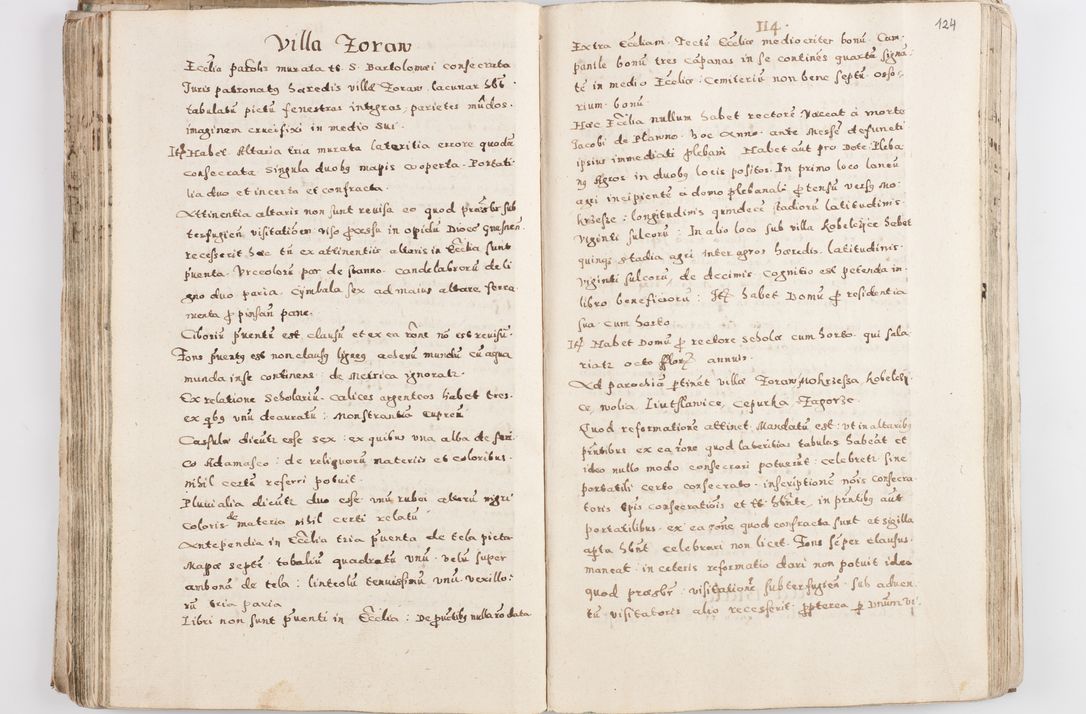 Villa Zoraw
Ecclia parohs murata ts. S. Bartolomei consecrata
Iuris patronatg hæredis villæ Zoraw. lacunar hēt
tabulatū pictū fenestras integras, parietes nudos.
imaginem crucifixi in medio sui.
Itē Habet Altaria tria murata lateritia errore quodā
consecrata Singula duobg mapis cooperta. Portati
lia duo et incerta et confracta.
Attinentia altaris non sunt revisa eo quod præsbr sub
terfugieñ visitatiōem viso p̄cessu in opidū Diocē Gnesneñ
recesserit hoc tñ ex attinentiis altaris in Ecclia sunt
p̄uenta. Vrceolorū par de stanno. Candelabrorū de li
gno duo paria. Cymbala sex ad maius altare ferra
menta p̄ pinsañ pane.
Ciboriū p̄uentū est clausū et ex ea rōne nō est revisū.
Fons p̄uentg est non clausg ligneg æneū mundū cū aqua
munda in se continens. de Metrica ignoratr.
Ex relatione Scholariū. calices argenteos habet tres.
ex qbg vnū deauratū: Monstrantiā cupreū
Casulæ dicutr esse sex: ex quibus vna alba de seri.
co Adamasco: de reliquorū materiis et coloribus.
nihil certū referri potuit.
Pluuialia dicutr duo esse vnū rubei alterū nigri
coloris de materia nihil certi relatū
Antependia in Ecclia tria p̄uenta de tela picta
Mapæ septē. tobaliū quadratū vnū. Velū super
ambonā de tela: linteolū tenuissimū vnū. Vexillo:
rū tria paria
Libri non sunt p̄uenti in Ecclia: De p̄uctibg nulla rō data
114.
124
Extra Eccliam. Tectū Eccliæ mediocriter bonū. Cam
panile bonū tres cāpanas in se continēs quartū signū:
tē in medio Eccliæ: Cemiteriū non bene septū. osso:
rium. bonū.
Hæc Ecclia nullum habet rectorē Vaccat à morte
Jacobi de Plawno. hoc Anno. ante Messē defuncti
ipsius immediati plebani Habet aūt pro Dote Pleba
ng Agros in duobg locis positos. In primo loco laneū
agri incipiente à domo plebanali p̄tensū versg Mo:
krzesze: longitudinis quindecē stadiorū latitudinis.
Viginti sulcorū: In alio loco sub villa Kobelczice habet
quinqg stadia agri inter agros hæredis. latitudinis.
Viginti sulcorū, de decimis. Cognitio est petenda in.
libro beneficiorū: Itē habet Domū p̄ residentia
sua cum horto
Itē Habet Domū p̄ rectore scholæ cum horto. qui sala
riatr octo florz annuis.
Ad parochiā p̄tinēt villæ Zoraw, Mokrzessa, Kobelczi
ce, wolia, Liutslawice, Cepurka, Zagorze.
Quod reformationē attinet. Mandatū est: vt in altaribg
p̄ntibus ex ea rōne quod lateritias tabulas habeāt et
ideo nullo modo consecrari potuerūt. celebretr. sine
portatili certo consecrato. inscriptionē nōis consecra
toris Epis consecratiōis et tt. hñte, in p̄ntibg aūt
portatilibus. ex ea rōne quod confracta sunt et sigilla
apta hñt celebrari non licet. Fons sēper clausus.
maneat. in ceteris reformatio dari non potuit ideo
quod præsbr. visitationē subterfugieñ. sub aduen
tū visitatoris alio recesserit. p̄pterea p̄ Dnum vi.